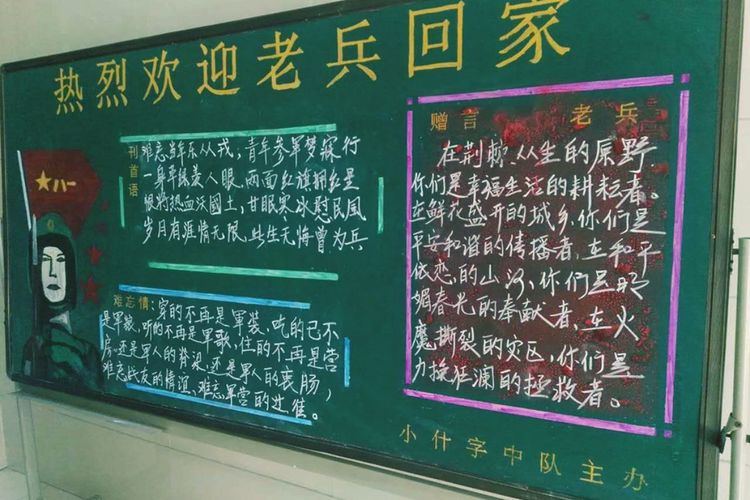 热烈欢迎老兵回家
刊首语
难忘当年乐从戎，青年参军梦寐行
一身平绿美人眼，两面红旗拥红星
狠将热血沃國土，甘眠寒冰慰民風
岁月有涯情无限，此生无悔曾为兵
八一
难忘情：穿的不再是軍装、吃的已不
是軍粮、听的不再是軍歌，住的不再是营
房，还是军人的脊梁、还是軍人的衷肠，
难忘战友的情谊、难忘军营的
赠言 老兵
在荆棘从生的原野，
你们是幸福生活的耕耘者。
在鲜花盛开的城乡，你们是
平安和谐的传播者，在和平
依恋的山河、你们是明
媚春光的奉献者，在火
魔撕裂的灾区，你们是
力挽狂澜的拯救者。
小什字中队主办